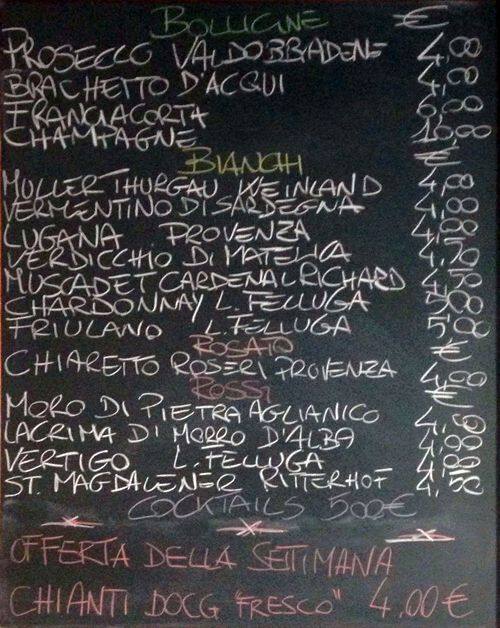 BOLLICINE €
PROSECCO VALDOBBIADENE 4,00
BRACHETTO D'ACQUI 4,00
FRANCIACORTA 6,00
CHAMPAGNE 10,00
BIANCHI €
MULLER THURGAU WEINLAND 4,00
VERMENTINO DI SARDEGNA 4,00
LUGANA PROVENZA 4,00
VERDICCHIO DI MATELICA 4,50
MUSCADET CARDENAL RICHARD 4,50
CHARDONNAY L. FELLUGA 5,00
FRIULANO L. FELLUGA 5,00
ROSATO €
CHIARETTO ROSERI PROVENZA 4,00
ROSSI €
MORO DI PIETRA AGLIANICO
LACRIMA D'MORRO D'ALBA 4,00
VERTIGO L. FELLUGA 4,00
ST. MAGDALENER RITTERHOF 4,50
COCKTAILS 500€
OFFERTA DELLA SETTIMANA
CHIANTI DOCG "FRESCO" 4,00 €